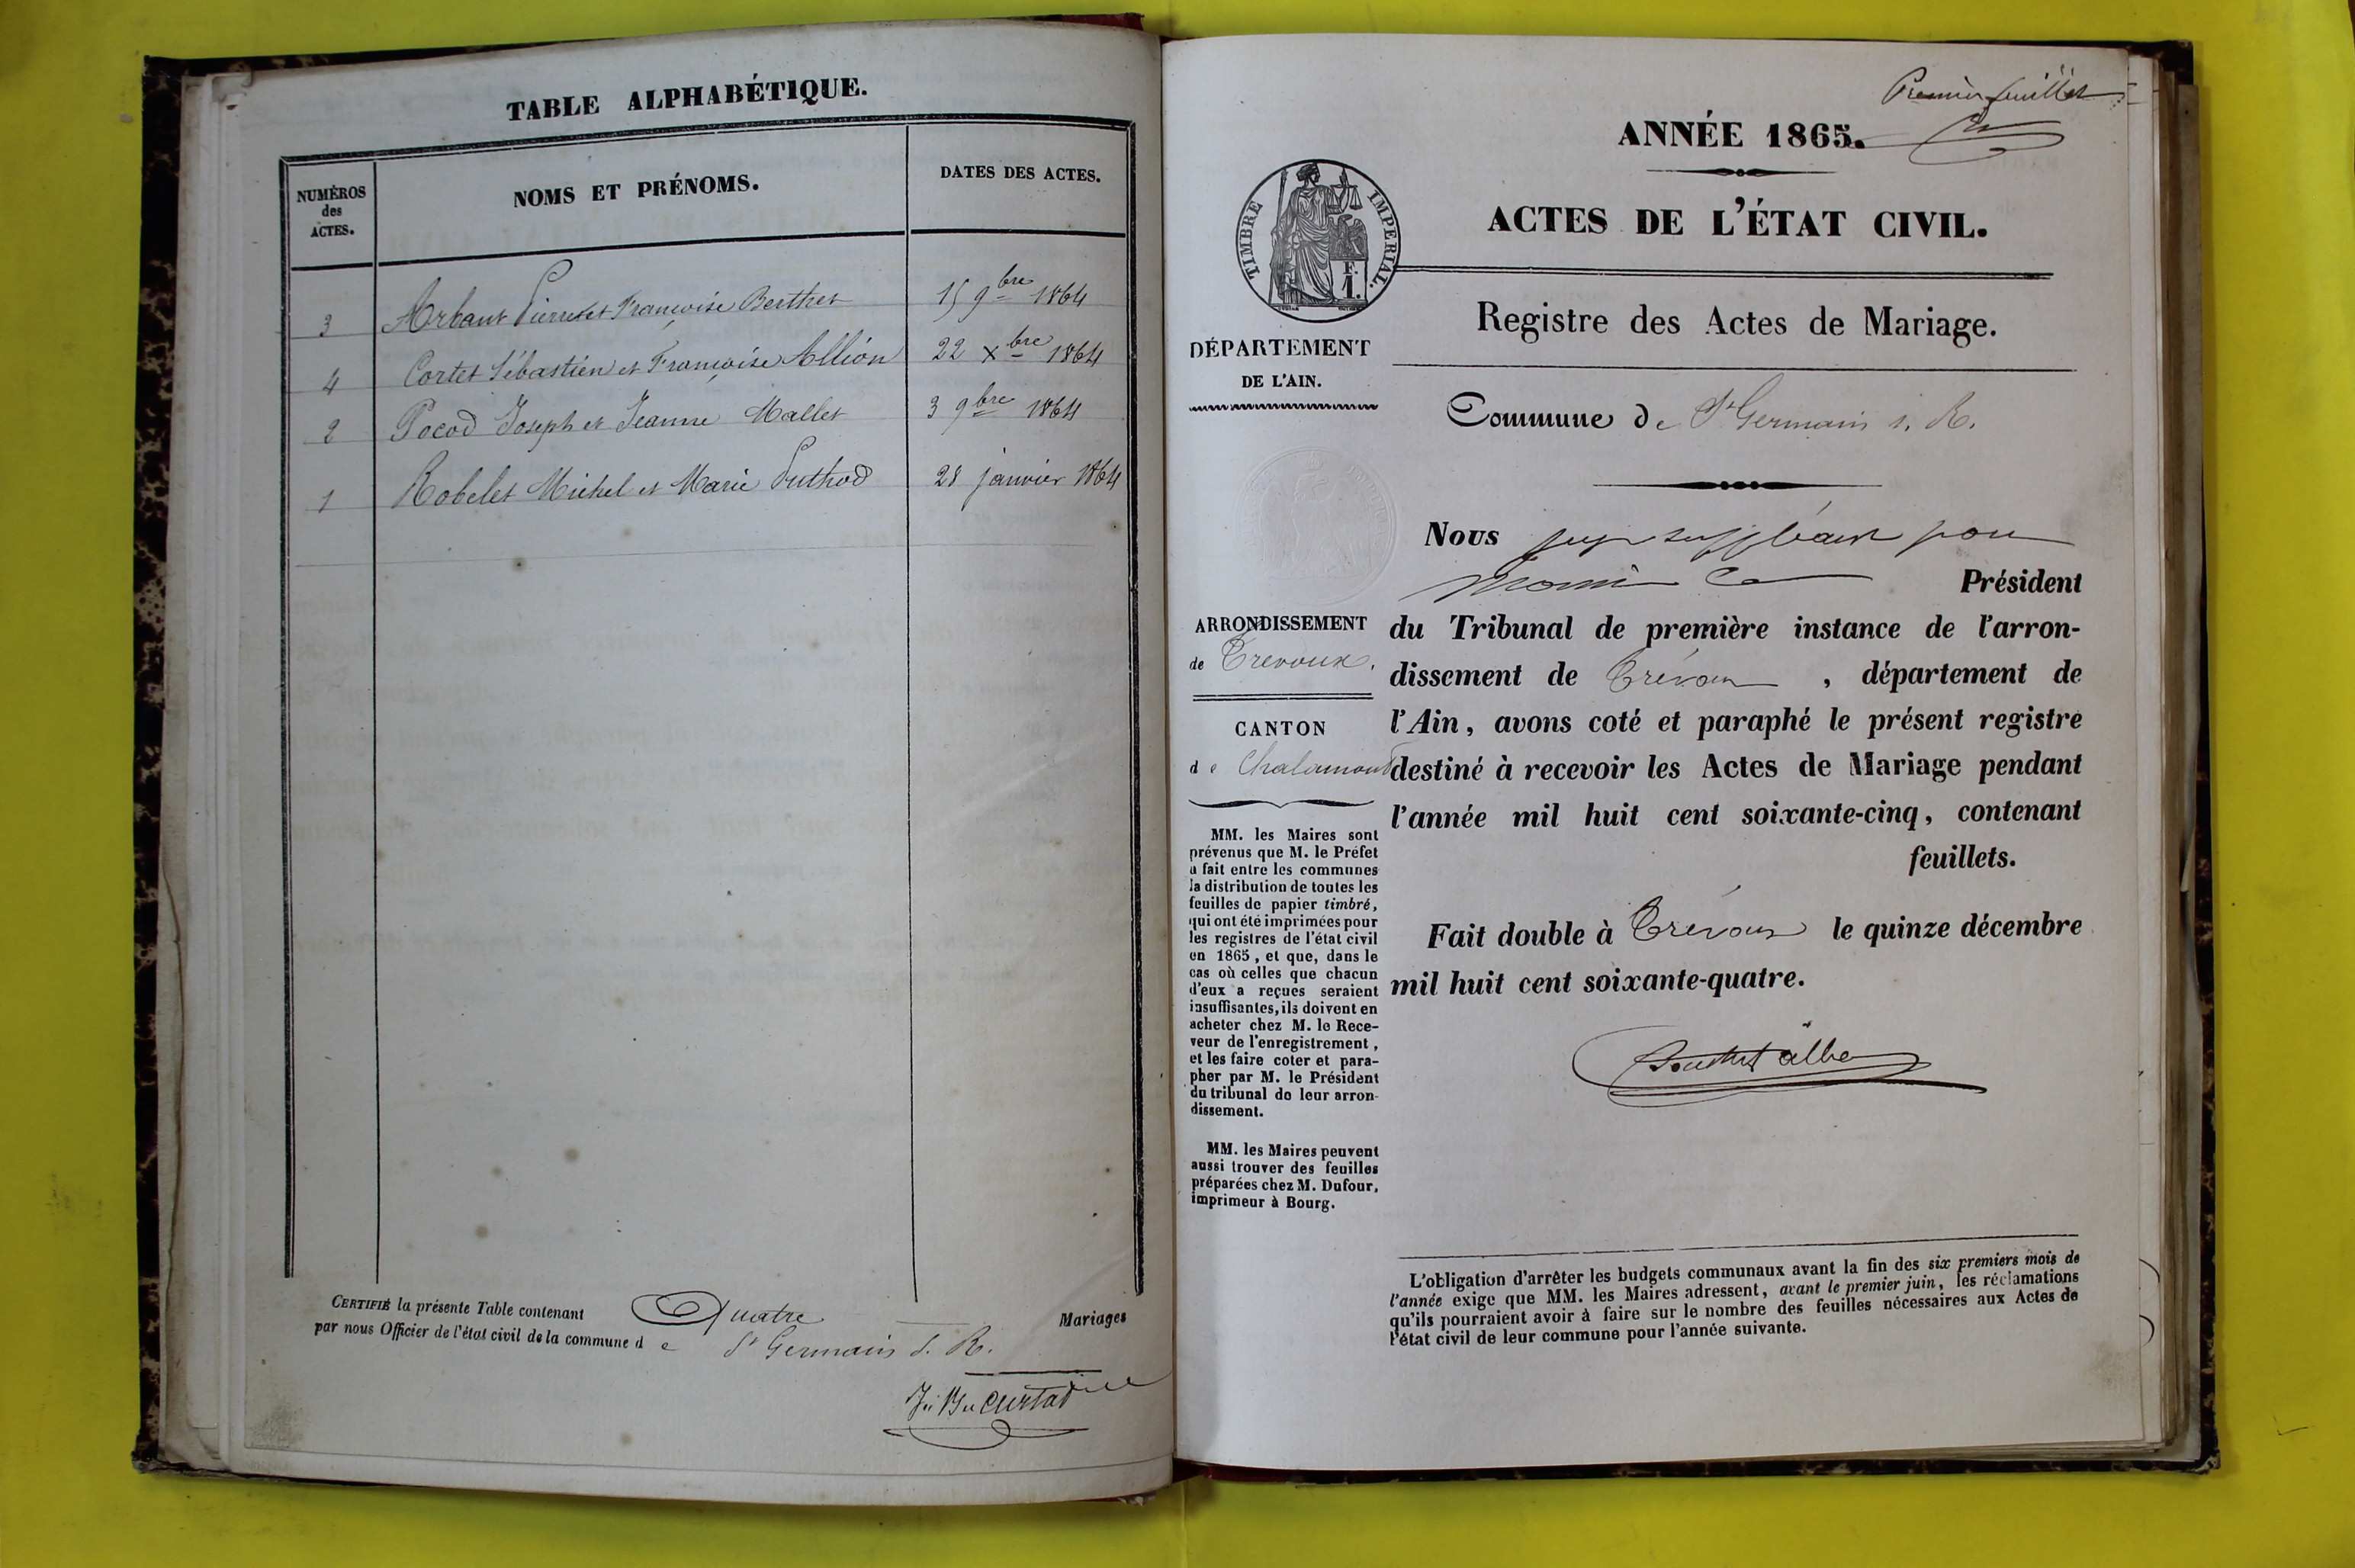 TABLE ALPHABÉTIQUE.
NUMÉROS des ACTES.
NOMS ET PRÉNOMS.
DATES DES ACTES.
3 Arbant Pierre et Françoise Berthet 15 9bre 1864
4 Cortet Sébastien et Françoise Allion 22 xbre 1864
2 Pocod Joseph et Jeanne Mallet 3 9bre 1864
1 Robelet Michel et Marie Puthod 28 janvier 1864
CERTIFIÉ la présente Table contenant Quatre Mariages
par nous Officier de l'état civil de la commune de St Germain s. R.
Premier feuillet
ANNÉE 1865.
ACTES DE L'ÉTAT CIVIL.
Registre des Actes de Mariage.
Commune de St Germain s. R.
TIMBRE IMPÉRIAL.
F.
1.
DÉPARTEMENT
DE L'AIN.
ARRONDISSEMENT
de Trévoux.
CANTON
de Chalamont
MM. les Maires sont
prévenus que M. le Préfet
a fait entre les communes
la distribution de toutes les
feuilles de papier timbré,
qui ont été imprimées pour
les registres de l'état civil
en 1865, et que, dans le
cas où celles que chacun
d'eux a reçues seraient
insuffisantes, ils doivent en
acheter chez M. le Rece-
veur de l'enregistrement,
et les faire coter et para-
pher par M. le Président
du tribunal de leur arron-
dissement.
MM. les Maires peuvent
aussi trouver des feuilles
préparées chez M. Dufour,
imprimeur à Bourg.
Nous juge suppléant pour
Président
du Tribunal de première instance de l'arron-
dissement de Trévoux, département de
l'Ain, avons coté et paraphé le présent registre
destiné à recevoir les Actes de Mariage pendant
l'année mil huit cent soixante-cinq, contenant
feuillets.
Fait double à Trévoux le quinze décembre
mil huit cent soixante-quatre.
L'obligation d'arrêter les budgets communaux avant la fin des six premiers mois de
l'année exige que MM. les Maires adressent, avant le premier juin, les réclamations
qu'ils pourraient avoir à faire sur le nombre des feuilles nécessaires aux Actes de
l'état civil de leur commune pour l'année suivante.